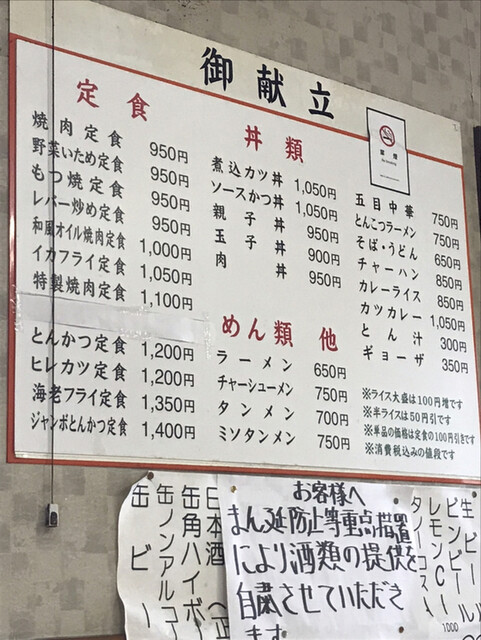 御献立
定食
焼肉定食 950円
野菜いため定食 950円
もつ焼定食 950円
レバー炒め定食 950円
和風オイル焼肉定食 1,000円
イカフライ定食 1,050円
特製焼肉定食 1,100円
とんかつ定食 1,200円
ヒレカツ定食 1,200円
海老フライ定食 1,350円
ジャンボとんかつ定食 1,400円
丼類
煮込カツ丼 1,050円
ソースかつ丼 1,050円
親子丼 950円
玉子丼 900円
肉丼 950円
めん類 他
ラーメン 650円
チャーシューメン 750円
タンメン 700円
ミソタンメン 750円
禁煙
五目中華 750円
とんこつラーメン 750円
そば・うどん 650円
チャーハン 850円
カレーライス 850円
カツカレー 1,050円
とん汁 300円
ギョーザ 350円
※ライス大盛は100円増です
※半ライスは50円引です
※単品の価格は定食の100円引きです
※消費税込みの値段です
お客様へ
まん延防止等重点措置
により酒類の提供を
自粛させていただき
ます
生ビール
レモン
1000
日本酒
缶角ハイボー
缶ノンアルコー
缶ビー